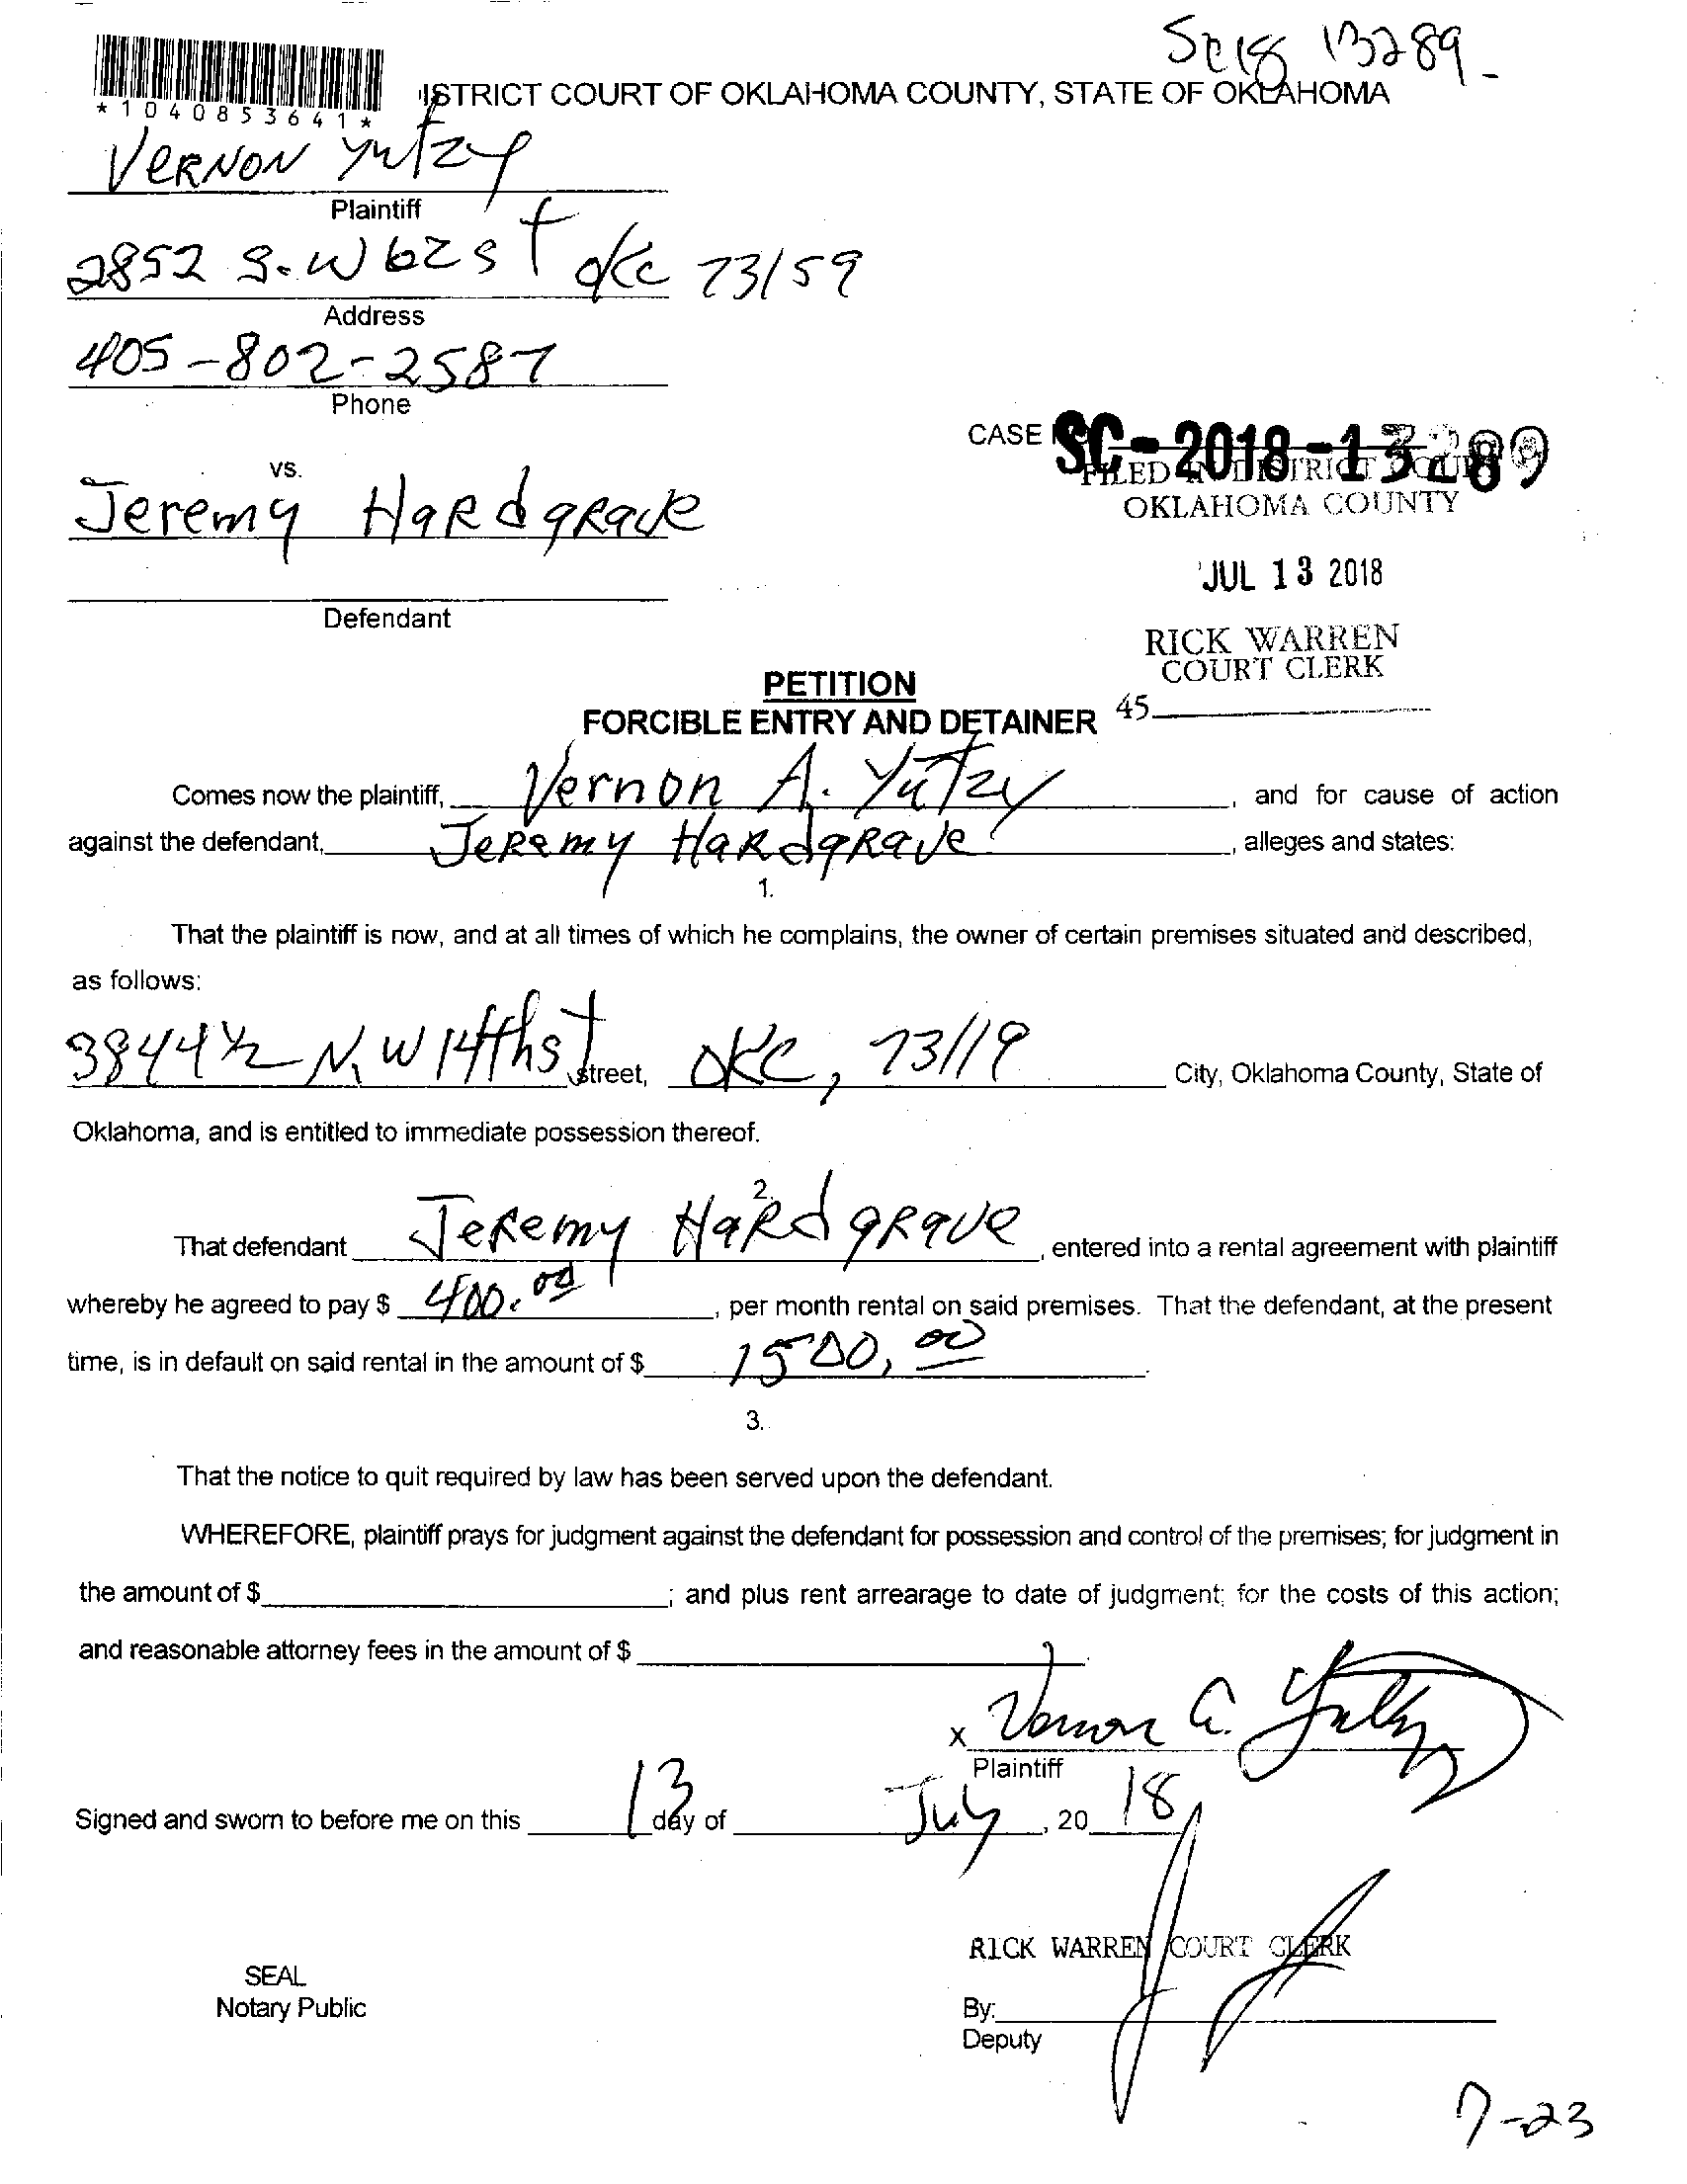 SC18 13289
*1040853641*
ISTRICT COURT OF OKLAHOMA COUNTY, STATE OF OKLAHOMA
VERNON Yutzy
Plaintiff
2852 S.W 62 st okc 73159
Address
405-802-2587
Phone
CASE SC-2018-13289
FILED IN DISTRICT COURT
OKLAHOMA COUNTY
vs.
Jeremy Hardgrave
JUL 13 2018
Defendant
RICK WARREN
COURT CLERK
45
PETITION
FORCIBLE ENTRY AND DETAINER
Comes now the plaintiff, Vernon A. Yutzy, and for cause of action
against the defendant, Jeremy Hardgrave, alleges and states:
1.
That the plaintiff is now, and at all times of which he complains, the owner of certain premises situated and described,
as follows:
3844 1/2 N.W 14th st street, OKC, 73119 City, Oklahoma County, State of
Oklahoma, and is entitled to immediate possession thereof.
2.
That defendant Jeremy Hardgrave, entered into a rental agreement with plaintiff
whereby he agreed to pay $ 400.00, per month rental on said premises. That the defendant, at the present
time, is in default on said rental in the amount of $ 1500,00.
3.
That the notice to quit required by law has been served upon the defendant.
WHEREFORE, plaintiff prays for judgment against the defendant for possession and control of the premises; for judgment in
the amount of $ ; and plus rent arrearage to date of judgment; for the costs of this action;
and reasonable attorney fees in the amount of $ .
x Vernon A. Yutzy
Plaintiff
Signed and sworn to before me on this 13 day of July, 20 18
RICK WARREN COURT CLERK
SEAL
Notary Public
By:
Deputy
7-23